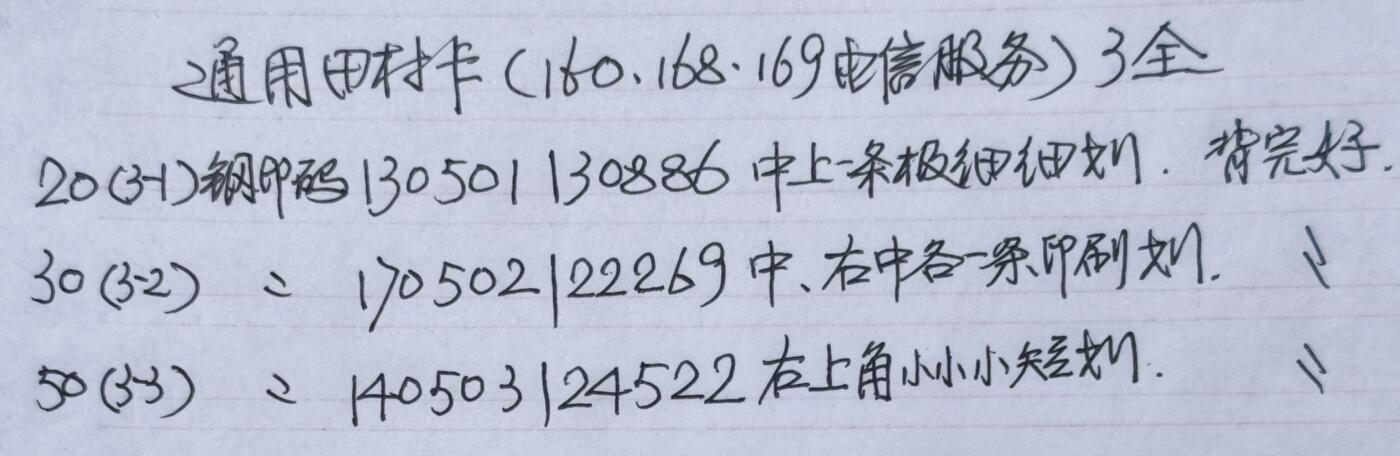 通用田村卡(160.168.169电信服务)3全
20(3-1)钢印码130501130886中上一条极细细划.背完好.
30(3-2) 〃 170502122269中、右中各一条印刷划. 〃
50(3-3) 〃 140503124522右上角小小小短划. 〃